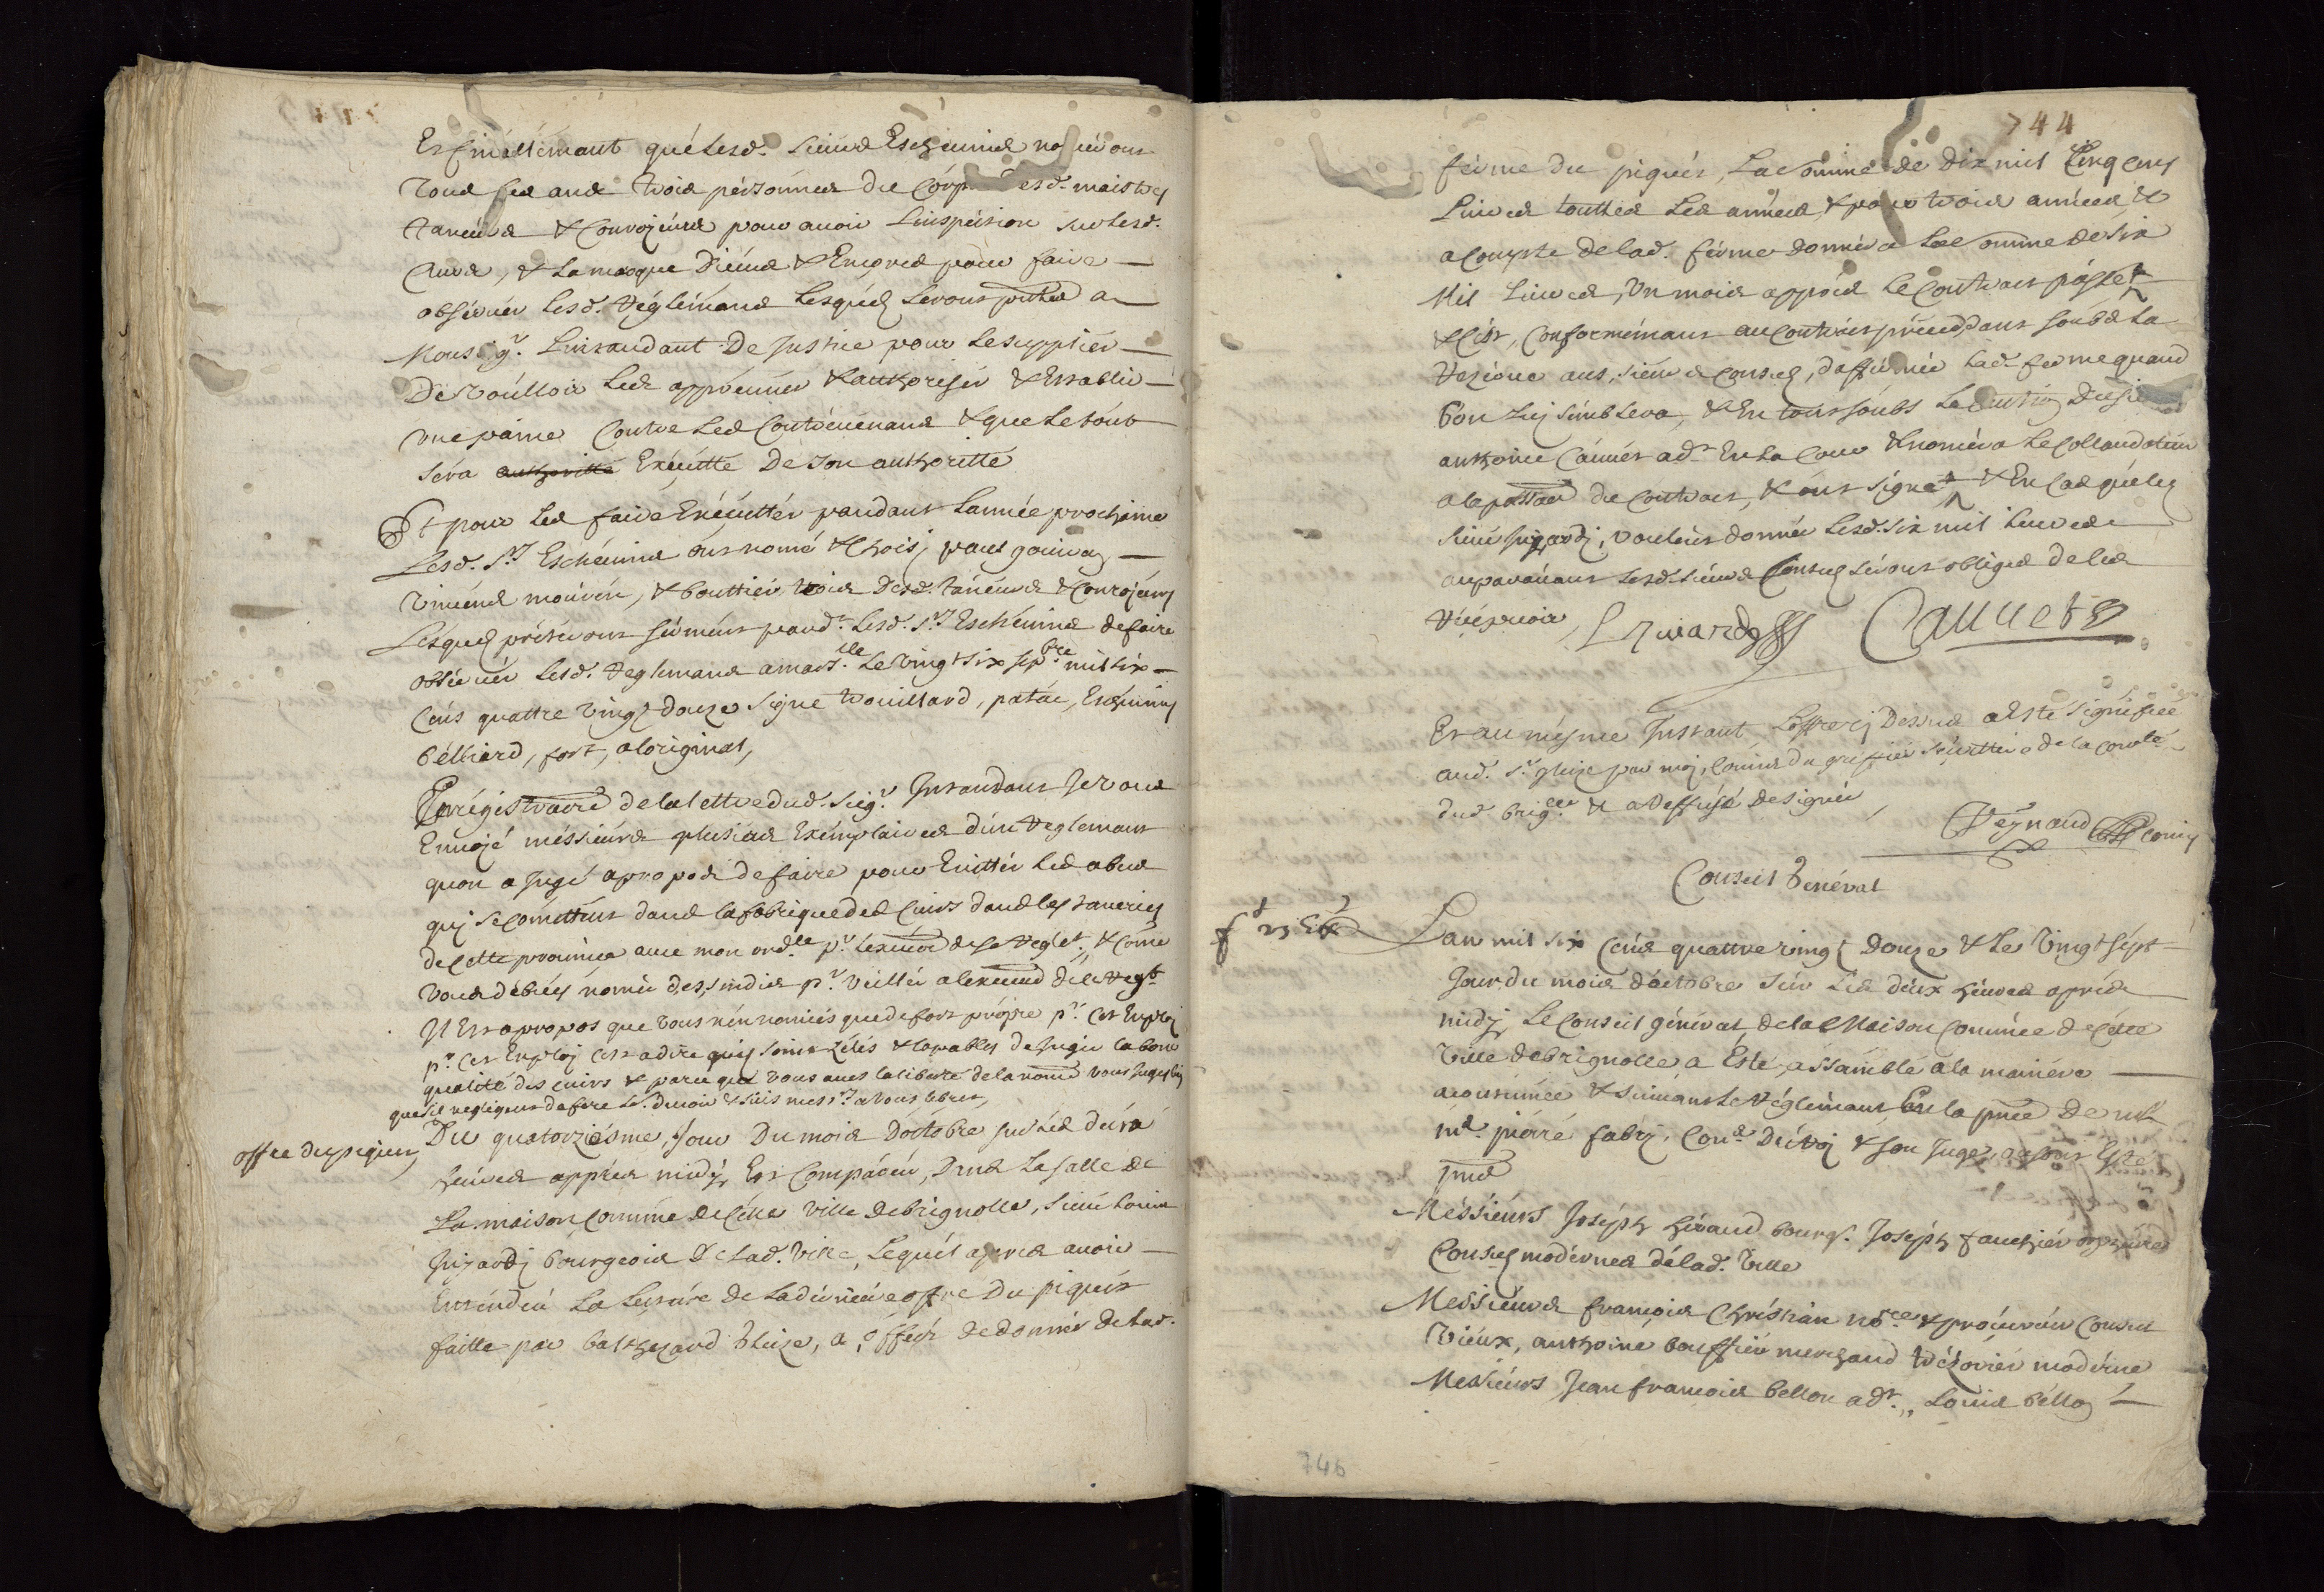 Et finallemant que lesd. sieurs Eschevins nomeront
tous les ans trois personnes du Corps desd. maistres
taneurs & Conrojeurs pour avoir Linspection sur lesd.
Cuirs, & la marque Diceux & Encores pour faire
observer lesd. Réglemans Lesquels seront portés a
Monseigr. Lintandant De Justice pour le supplier
De voulloir Les approuver & authoriser & Establir
une paine Contre Les Contrevenans & que Le tout
sera authoritté Exécutté De son authoritté
Et pour Les faire Exécutter pandant Lannée prochaine
Lesd. Srs Eschevins ont nomé & Choisj paul gouiran
Vincens mouren, & bouttier trois Desd. taneurs & Conrojeurs
Lesquels presteront sérment pardt. Lesd. Srs Eschevins de faire
observer Lesd. Reglemans a marslle. Le vingt six sepbre. mil six
Cens quattre vingt douze signé trouillard, patac, Eschevins
belliard, fort, a loriginal,
Enrégistrairé de la lettre dud. seigr. Intandant Je vous
Envojé méssieurs plusieurs Exémplaires dun Reglemant
quon a Jugé apropos de faire pour Evitter Les abus
quj se cometteut dans la fabrique des Cuirs dans les taneries
de cette province avec mon ordce. pr. Lexeuon de se Reglet. & Come
vous debvés nomer des sindics pr. veiller a lexeuon dele Reglt
Il Est apropos que vous nén nomiés que de fort propre pr. Cet Employ
pr Cet Employ Cest adire quils soint zélés & Capables de Juger la bone
qualité des cuirs & parce que vous aves la liberté de la nomon vous Jugés bien
que sil negligent de fere Lr. devoir & suis messrs. a vous libres,
offre du piquet,
Du quatorziesme Jour Du mois Doctobre sur Les deux
heures appres midy, Est Comparéu, Dans La salle de
La maison Comune de Cette ville de brignolle, sieur Louis
Jujardj bourgeois De Lad. ville, Lequél apres avoir
Entendeu La Lecture de La derniere offre Du piquet
faitte par balthezard Gleize, a offert de donner de Lad.
744
ferme du piquet, La somme de Dix mil Cinq cens
Livres touttes Les années, & pour trois années, &
a Compte de Lad. ferme donnera La somme de six
Mil Livres, Un mois apprés Le Contract passé
& Cest, Conformemant au Contract préced.dant soubs La
Rezerve aus, sieurs Consuls, daffermer Lad. ferme quand
bon Luj semblera, & En tout soubs La Caution Du sieur
anthoine Cauvet adt. En La Cour & nomera Le Collaudateur
a la passaon du Contract, & ont signé & En Cas que Led
sieur Jujardj, vouleut donner Lesd. six mil livres
auparavant Lesd. sieurs Consuls séront obliges de Les
Recepvoir,
Cauvet
Et au mésme Instant Loffre cy Dessus a Esté signéfiée
aud. sr. gleize par moj, Comis du greffier
dud. brigle. & a Deffusé de signér,
Reynaud Comis
Conseil General
Lan mil six Cens quattre vingt Douze & Le Vingt sept
Jour, du mois doctobre sur Les deux heures aprés
midj, Le Conseil général, de la Maison Comune de Cette
ville de brignolle a Esté, assamblé a la maniere
acoustumée & suivant Le Réglemant En la pnce de
mr. pierre fabrj, Coner Du Roj & son Juge,
pnts
Méssieurs Joséph giraud bourgs. Joséph fauchier orphevre
Consuls modernes de Lad. Ville
Messieurs françois Chréstian nore & procureur Consul
vieux, anthoine bouffier merchand trézorier moderne
Messieurs Jean françois bellon adt.,, Louis béllon
746